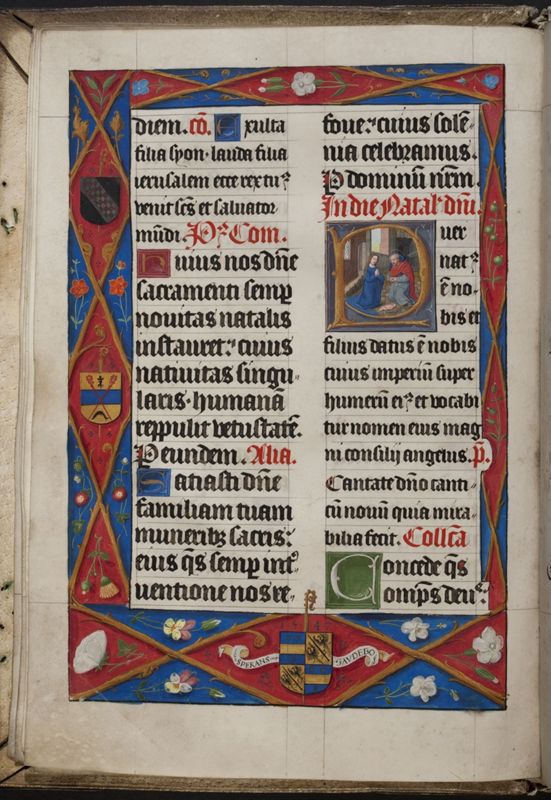 diem. cō. Exulta
filia syon. lauda filia
ierusalem ecce rex tuꝰ
venit scs et saluator
mūdi. Com.
Huius nos dn̄e
sacramenti semꝑ
nouitas natalis
instauret: cuius
natiuitas singu-
laris. humanā
reppulit vetustatē.
P eundem. Alia.
Satiasti dn̄e
familiam tuam
muneribꝫ sacris:
eius q̄s semꝑ intꝰ
uentione nos re-
foue: cuius solē-
nia celebramus.
P dominū nr̄m.
In die Natal. dn̄i.
Puer
natꝰ
ē no-
bis et
filius datus ē nobis
cuius imperiū super
humerū eiꝰ et vocabi
tur nomen eius mag
ni consilij angelus. p̄.
Cantate dn̄o canti-
cū nouū quia mira-
bilia fecit. Collc̄a
Concede q̄s
omp̄s deus:
1 5 4
SPERANS
GAVDEBO